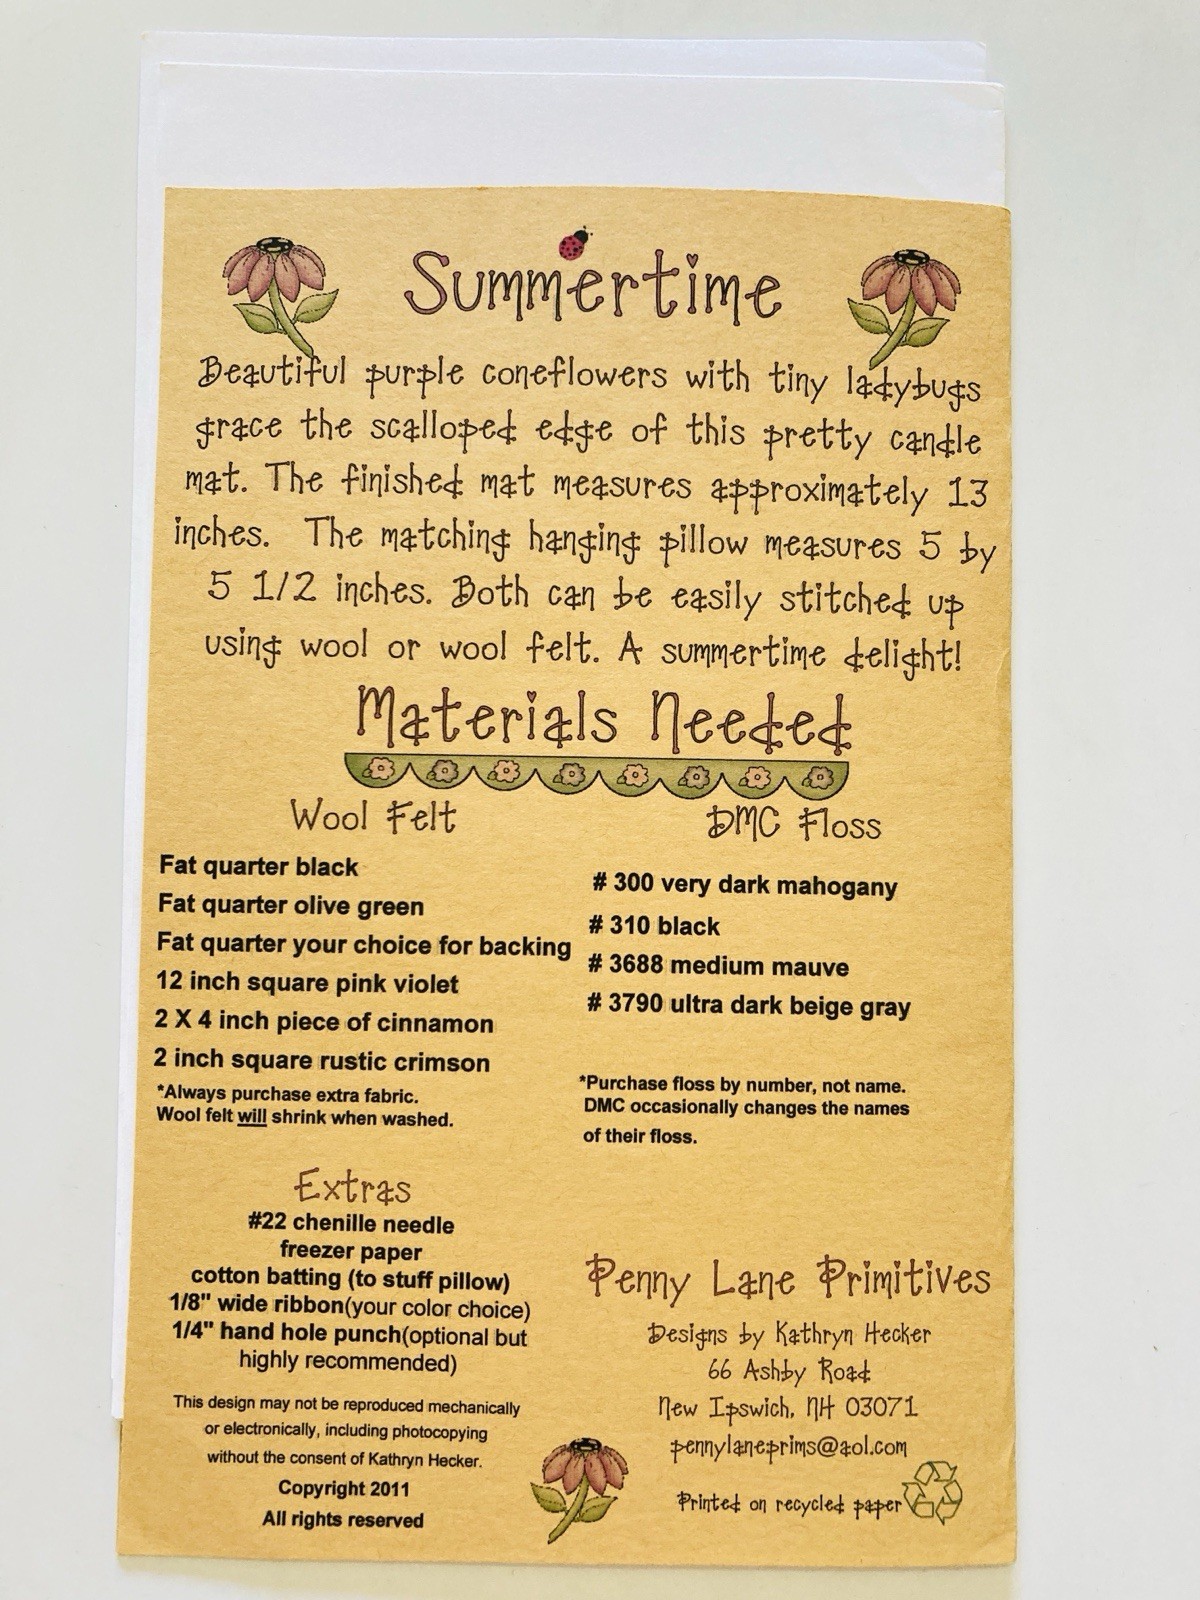 Summertime
Beautiful purple coneflowers with tiny ladybugs
grace the scalloped edge of this pretty candle
mat. The finished mat measures approximately 13
inches. The matching hanging pillow measures 5 by
5 1/2 inches. Both can be easily stitched up
using wool or wool felt. A summertime delight!
Materials Needed
Wool Felt
Fat quarter black
Fat quarter olive green
Fat quarter your choice for backing
12 inch square pink violet
2 X 4 inch piece of cinnamon
2 inch square rustic crimson
*Always purchase extra fabric.
Wool felt will shrink when washed.
DMC Floss
# 300 very dark mahogany
# 310 black
# 3688 medium mauve
# 3790 ultra dark beige gray
*Purchase floss by number, not name.
DMC occasionally changes the names
of their floss.
Extras
#22 chenille needle
freezer paper
cotton batting (to stuff pillow)
1/8" wide ribbon(your color choice)
1/4" hand hole punch(optional but
highly recommended)
This design may not be reproduced mechanically
or electronically, including photocopying
without the consent of Kathryn Hecker.
Copyright 2011
All rights reserved
Penny Lane Primitives
Designs by Kathryn Hecker
66 Ashby Road
New Ipswich, NH 03071
pennylaneprims@aol.com
Printed on recycled paper